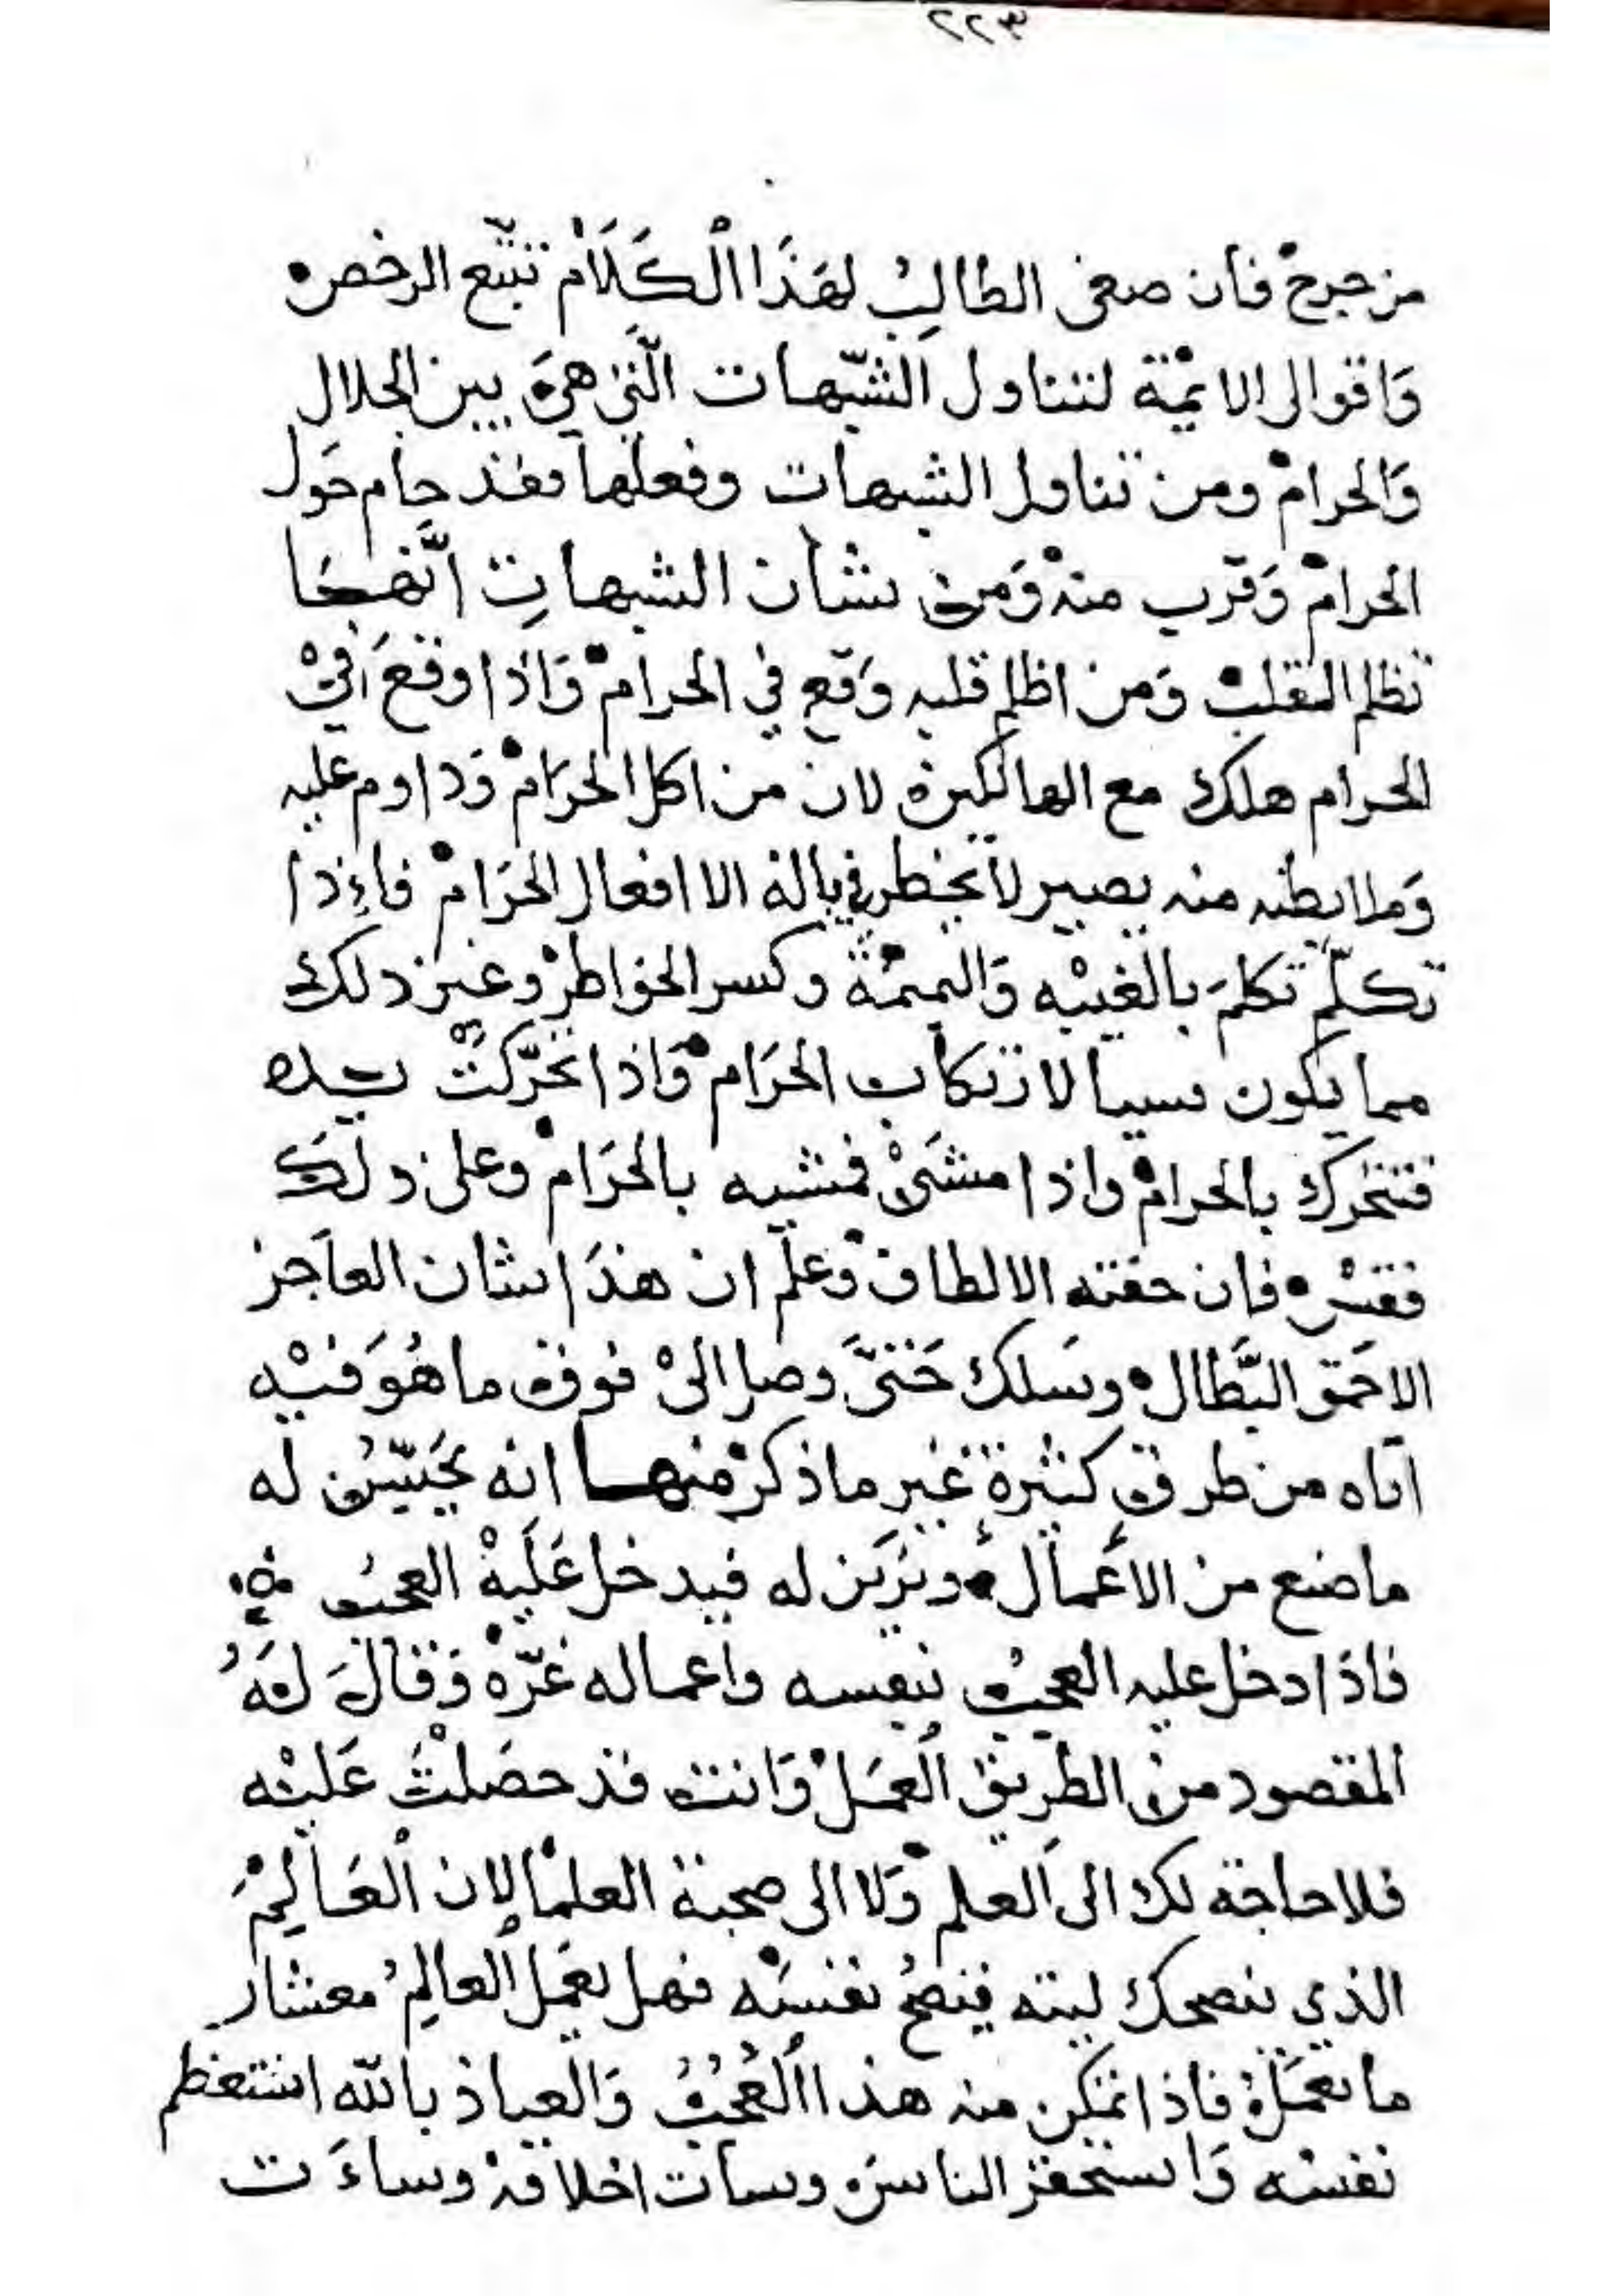 ٢٢٣
من حرج فان صغى الطالب لهذا الكلام تتبع الرخص
واقوال الايمة لتناول الشبهات التي هي بين الحلال
والحرام ومن تناول الشبهات وفعلها فقد حام حول
الحرام وقرب منه ومن شان الشبهات انها
تظلم القلب ومن اظلم قلبه وقع في الحرام واذا وقع في
الحرام هلك مع الهالكين لان من اكل الحرام وداوم عليه
وملا بطنه منه يصير لا يخطر في باله الا افعال الحرام فاذا
تكلم تكلم بالغيبه والنميمة وكسر الخواطر وغير ذلك
مما يكون سببا لارتكاب الحرام واذا تحركت يده
فتتحرك بالحرام واذا مشى فمشيه بالحرام وعلى ذلك
فقس فان حفته الالطاف وعلم ان هذا شان العاجز
الاحمق البطال وسلك حتى وصل الى فوق ما هو فيه
اتاه من طرق كثيرة غير ما ذكر منها انه يحسن له
ما صنع من الاعمال ويزين له فيدخل عليه العجب
فاذا دخل عليه العجب بنفسه واعماله غره وقال له
المقصود من الطريق العمل وانت قد حصلت عليه
فلا حاجة لك الى العلم ولا الى صحبة العلما لان العالم
الذي ينصحك ليته ينصح نفسه فهل يعمل العالم معشار
ما تعمله فاذا تمكن منه هذا العجب والعياذ بالله استعظم
نفسه واستحقر الناس وسات اخلاقه وساءت